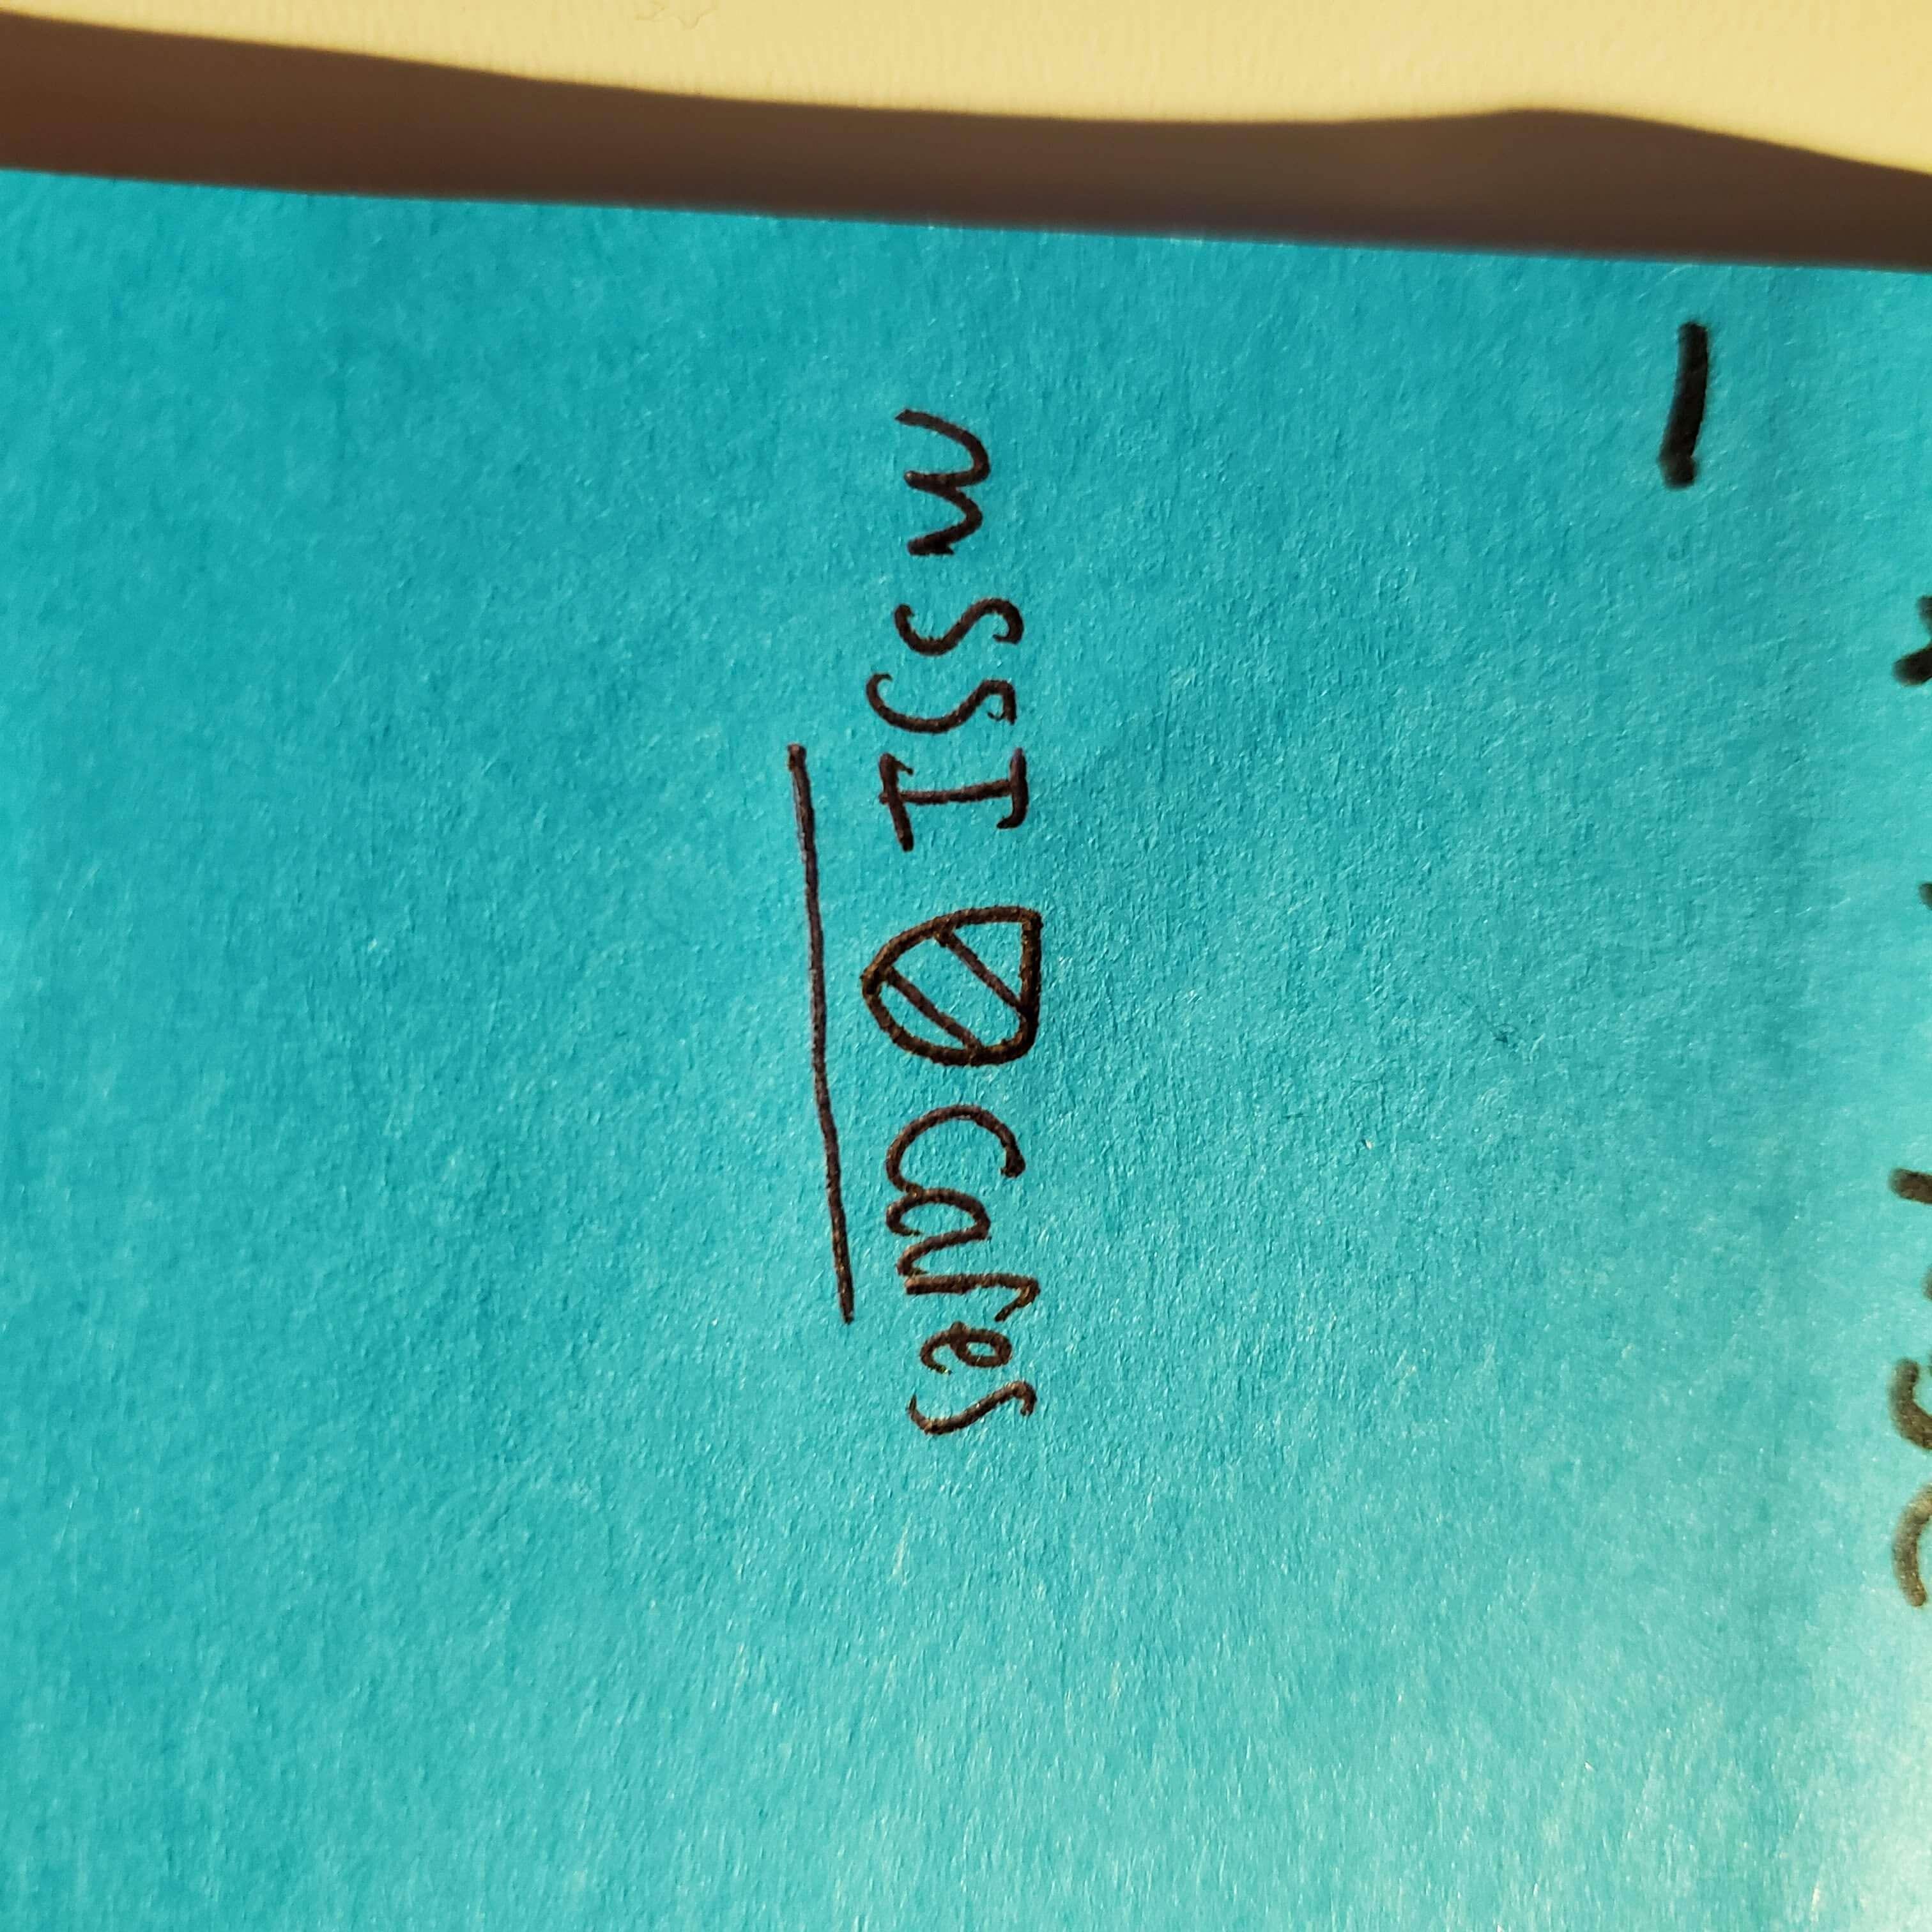 mSSI Cares